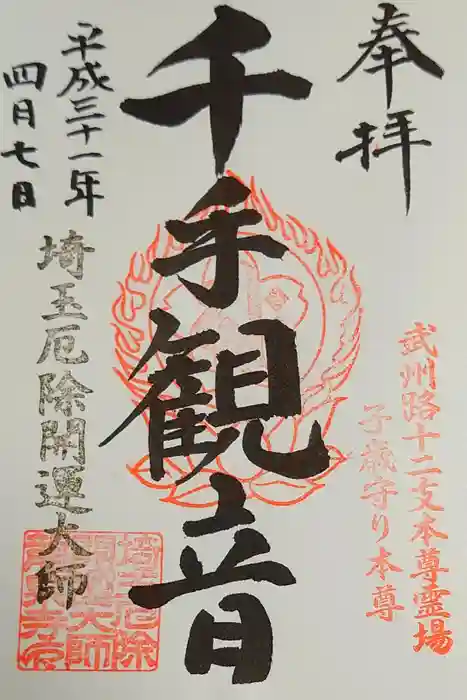 奉拝
武州路十二支本尊霊場
子歳守り本尊
千手観音
平成三十一年
四月七日
埼玉厄除開運大師